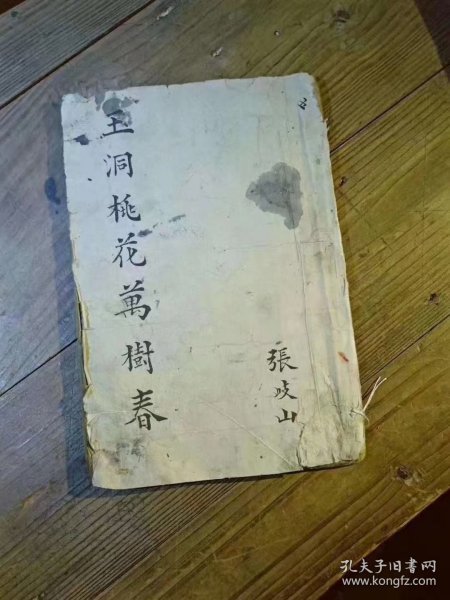 玉洞桃花萬樹春
張歧山
孔夫子旧书网
www.kongfz.com